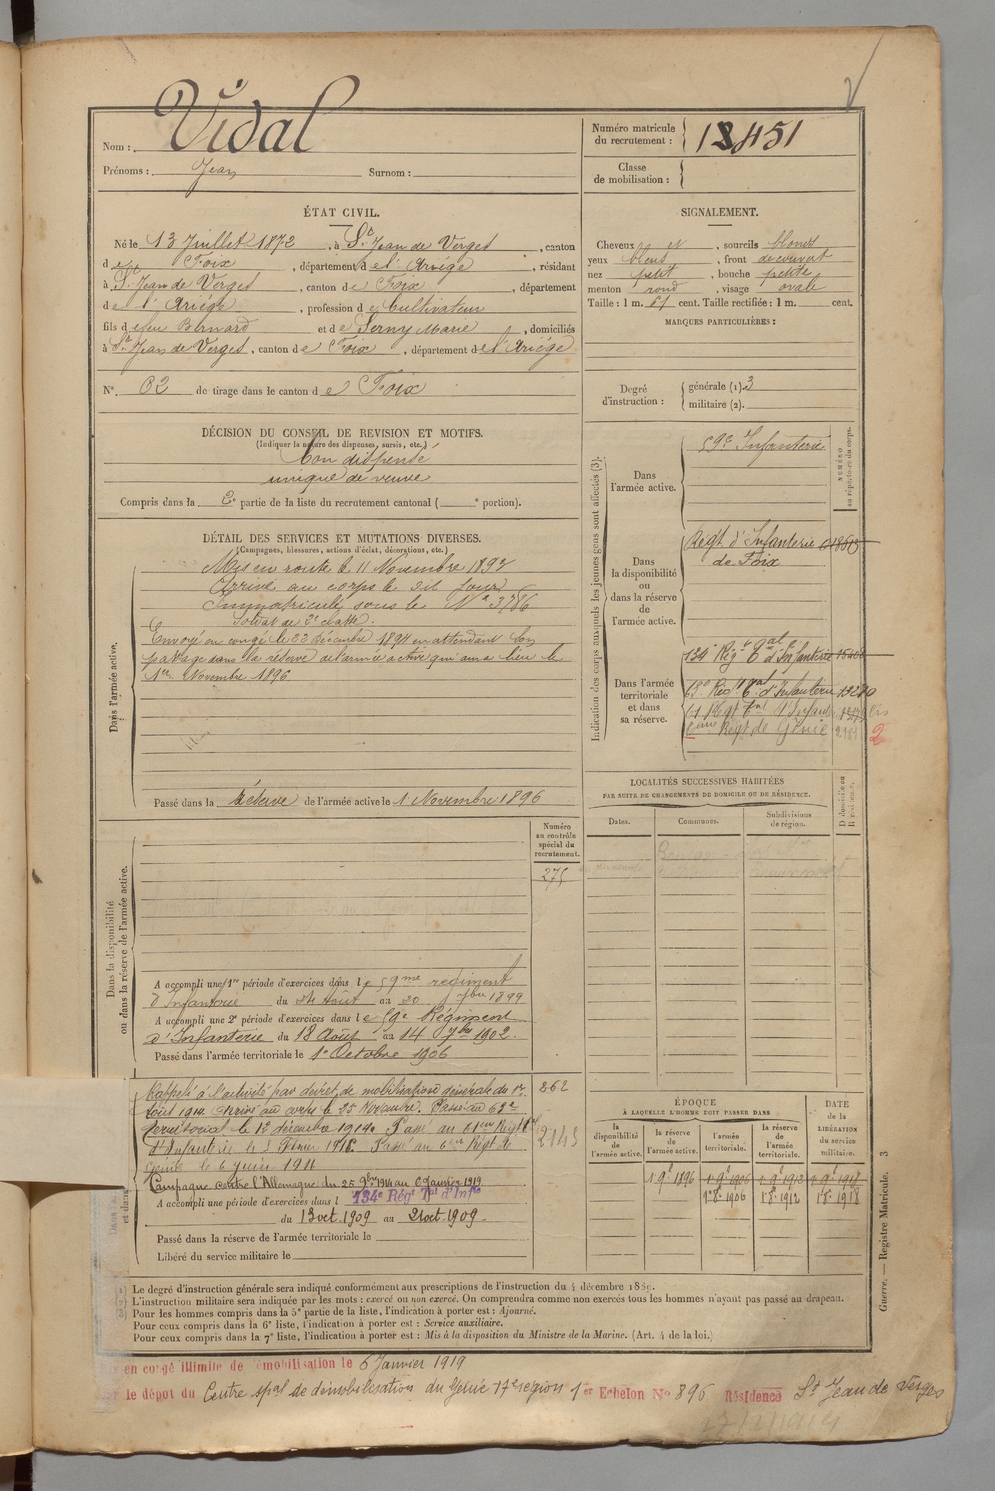 Nom : Vidal
Prénoms : Jean Surnom :
Numéro matricule du recrutement : 1451
Classe de mobilisation :
ÉTAT CIVIL.
Né le 13 Juillet 1872, à St Jean de Verges, canton
de Foix, département de l'Ariège, résidant
à St Jean de Verges, canton de Foix, département
de l'Ariége, profession de Cultivateur
fils de feu Bernard et de Serny Marie, domiciliés
à St Jean de Verges, canton de Foix, département de l'Ariége
N°. 62 de tirage dans le canton de Foix
SIGNALEMENT.
Cheveux et, sourcils blonds
yeux bleus, front découvert
nez petit, bouche petite
menton rond, visage ovale
Taille : 1 m. 61 cent. Taille rectifiée : 1 m. cent.
MARQUES PARTICULIÈRES :
Degré d'instruction : générale (1). 3
militaire (2).
DÉCISION DU CONSEIL DE REVISION ET MOTIFS.
(Indiquer la nature des dispenses, sursis, etc.)
bon dispensé
unique de veuve
Compris dans la 2e partie de la liste du recrutement cantonal ( e portion).
DÉTAIL DES SERVICES ET MUTATIONS DIVERSES.
(Campagnes, blessures, actions d'éclat, décorations, etc.)
Dans l'armée active.
Mis en route le 11 Novembre 1893
Arrivé au corps le dit jour
Immatriculé sous le N° 3786
Soldat de 2e classe.
Envoyé en congé le 22 décembre 1894 en attendant son
passage dans la réserve de l'armée active qui aura lieu le
1er Novembre 1896
Passé dans la réserve de l'armée active le 1 Novembre 1896
Indication des corps auxquels les jeunes gens sont affectés (3).
NUMÉRO au répertoire du corps.
Dans l'armée active.
59e Infanterie
Dans la disponibilité ou dans la réserve de l'armée active.
Regt d'Infanterie
de Foix
Dans l'armée territoriale et dans sa réserve.
134e Régt Tal d'Infanterie
63e Régt Tal d'Infanterie
61e Regt Tal d'Infanterie
6ème Régt de Génie
2
LOCALITÉS SUCCESSIVES HABITÉES
PAR SUITE DE CHANGEMENTS DE DOMICILE OU DE RÉSIDENCE.
Dates. Communes. Subdivisions de région. D domicile ou R résidence.
Dans la disponibilité ou dans la réserve de l'armée active.
Numéro au contrôle spécial du recrutement.
275
A accompli une 1re période d'exercices dans le 59me régiment
d'Infanterie du 24 Août au 20 7bre 1899
A accompli une 2e période d'exercices dans le 59e Régiment
d'Infanterie du 18 Août au 14 7bre 1902.
Passé dans l'armée territoriale le 1er Octobre 1906
Rappelé à l'activité par décret de mobilisation générale du 1er
Août 1914. Arrivé au corps le 25 Novembre. Passé au 63e
territorial le 12 décembre 1914. Passé au 61ème Régt Tal
d'Infanterie le 3 Février 1916. Passé au 6ème Régt de
Génie le 6 juin 1916
262
2145
Campagne contre l'Allemagne du 25 9bre 1914 au 6 Janvier 1919
A accompli une période d'exercices dans l 134e Régt Tal d'Infie
du 13 oct. 1909 au 21 oct. 1909.
Passé dans la réserve de l'armée territoriale le
Libéré du service militaire le
ÉPOQUE
À LAQUELLE L'HOMME DOIT PASSER DANS
DATE de la LIBÉRATION du service militaire.
la disponibilité de l'armée active. la réserve de l'armée active. l'armée territoriale. la réserve de l'armée territoriale.
1 9e 1896 1 9e 1906 1 9e 1912 1 9e 1918
1 8e 1906 1 8e 1912 1 8e 1918
Guerre. — Registre Matricule. 3
Le degré d'instruction générale sera indiqué conformément aux prescriptions de l'instruction du 4 décembre 1889.
L'instruction militaire sera indiquée par les mots : exercé ou non exercé. On comprendra comme non exercés tous les hommes n'ayant pas passé au drapeau.
Pour les hommes compris dans la 5e partie de la liste, l'indication à porter est : Ajourné.
Pour ceux compris dans la 6e liste, l'indication à porter est : Service auxiliaire.
Pour ceux compris dans la 7e liste, l'indication à porter est : Mis à la disposition du Ministre de la Marine. (Art. 4 de la loi.)
en congé illimité de démobilisation le 6 Janvier 1919
le dépôt du Centre spal de démobilisation du Génie 17e région 1er Echelon No 896 Résidence St Jean de Verges